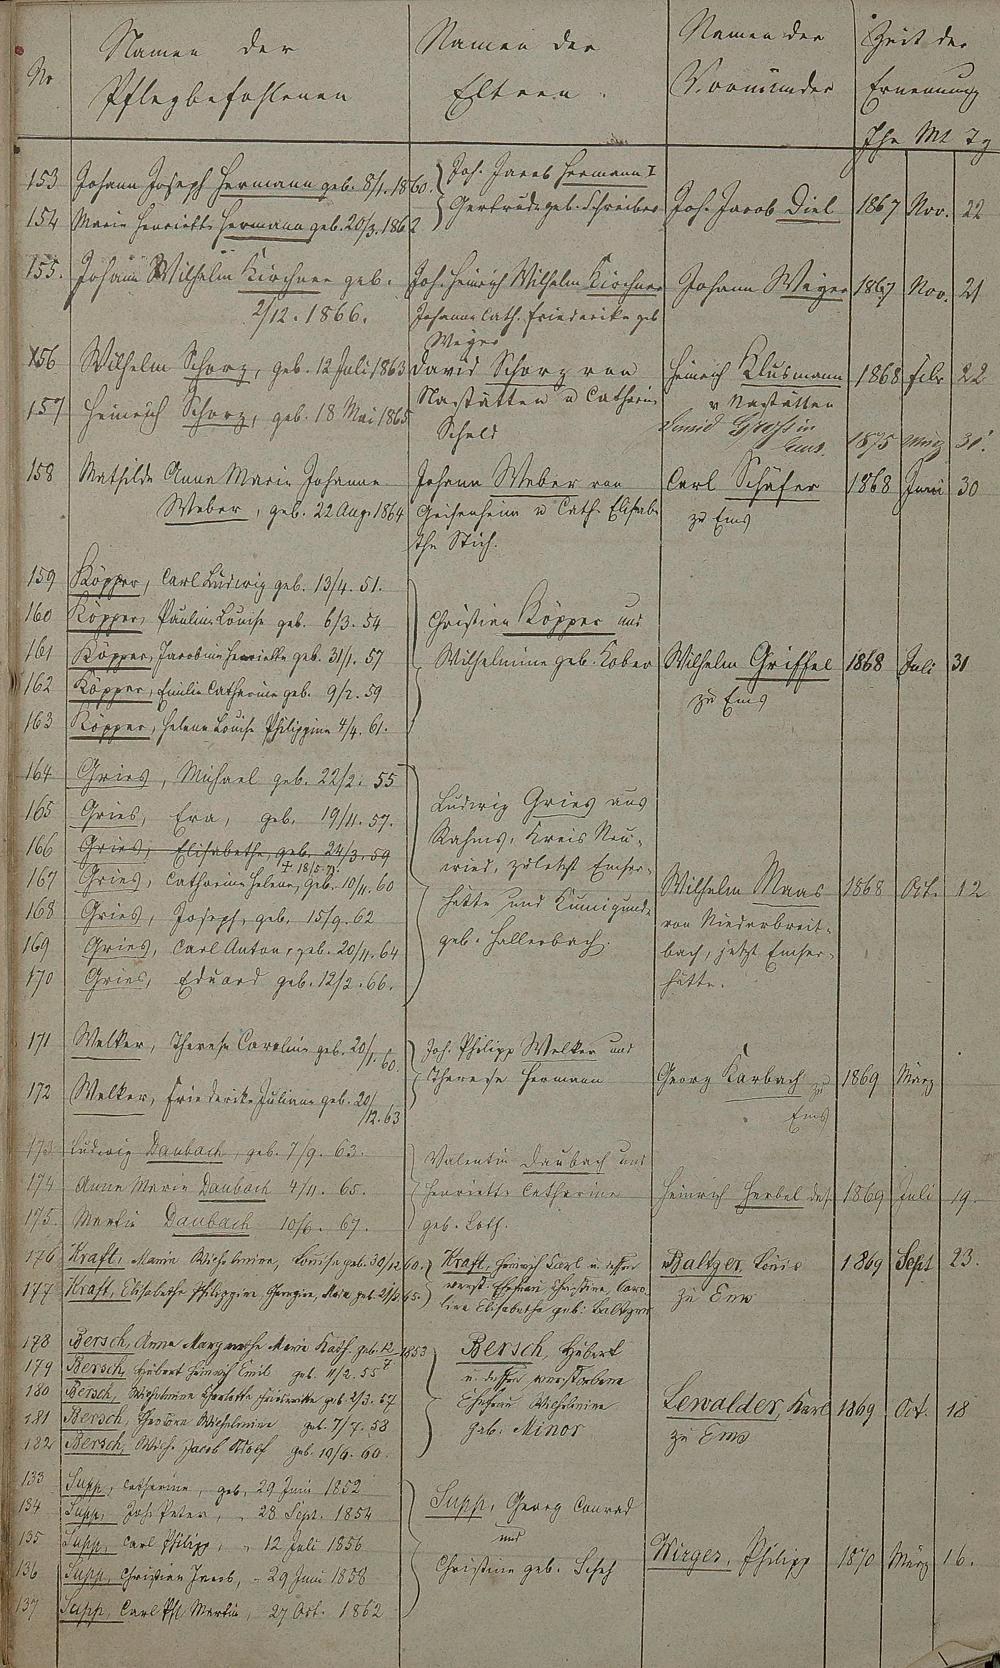 Nr
Namen der
Pflegbefohlenen
Namen der
Eltern
Namen der
Vormünder
Zeit der
Ernennung
Jhr Mt Tg
153 Johann Joseph Hermann geb. 8/1. 1860.
154 Maria Henriette Hermann geb. 20/3. 1862
Joh. Jacob Hermann I
Gertrude geb. Schreiber
Joh. Jacob Diel 1867 Nov. 22
155. Johann Wilhelm Kirchner geb.
2/12. 1866.
Joh. Heinrich Wilhelm Kirchner
Johanna Cath. Friederike geb
Weyer
Johann Weyer 1867 Nov. 21
156 Wilhelm Schorz, geb. 12 Juli 1863
157 Heinrich Schorz, geb. 18 Mai 1865
David Schorz von
Nastätten u Catharin
Scheld
Heinrich Klusmann 1868 Febr 22
v Nastätten
David Groß in
Ems. 1875 März 31.
158 Mathilde Anna Maria Johanna
Weber, geb. 22 Aug. 1864
Johann Weber von
Geisenheim u Cath. Elisabe
the Stich.
Carl Schäfer 1868 Juni 30
zu Ems
159 Köpper, Carl Ludwig geb. 13/4. 51.
160 Köpper, Pauline Louise geb. 6/3. 54
161 Köpper, Jacobine Henriette geb. 31/1. 57
162 Köpper, Emilie Catharine geb. 9/2. 59
163 Köpper, Helene Louise Philippine 4/4. 61.
Christian Köpper und
Wilhelmine geb. Kober
Wilhelm Griffel 1868 Juli 31
zu Ems
164 Gries, Michael geb. 22/2. 55
165 Gries, Eva, geb. 19/11. 57.
166 Gries, Elisabethe, geb. 24/3. 59
167 Gries, Catharine Helene, geb. 10/11. 60
168 Gries, Joseph, geb. 15/9. 62
169 Gries, Carl Anton, geb. 20/11. 64
170 Gries, Eduard geb. 12/2. 66.
Ludwig Gries aus
Rahms, Kreis Neu-
wied, zuletzt Emser-
hütte und Kunigunde
geb. Hallerbach.
Wilhelm Maas 1868 Oct. 12
von Niederbreit-
bach, jetzt Emser-
hütte.
171 Welker, Therese Caroline geb. 20/1. 60.
172 Welker, Friederike Juliane geb. 20/12. 63
Joh. Philipp Welker und
Therese Hermann
Georg Karbach zu 1869 März
Ems
173 Ludwig Daubach, geb. 7/9. 63.
174 Anna Maria Daubach 4/11. 65.
175. Martin Daubach 10/6. 67.
Valentin Daubach und
Henriette Catharine
geb. Loth.
Heinrich Herbel das. 1869 Juli 19.
176 Kraft, Maria Wilhelmine, Louise geb. 30/12 60.
177 Kraft, Elisabethe Philippine Georgine, Maria geb.
Kraft, Heinrich Carl u. dessen
verst. Ehefrau Christine, Caro-
line Elisabethe geb. Baltzer
Baltzer, Louis 1869 Sept 23.
zu Ems
178 Bersch, Anna Margarethe Maria Kath. geb. 1853
179 Bersch, Hubert Heinrich Emil geb. 11/2. 55
180 Bersch, Wilhelmine Charlotte Friederike geb. 2/3. 57
181 Bersch, Theodora Wilhelmine geb. 7/7. 58
182 Bersch, Wilh. Jacob Adolf geb. 10/6. 60.
Bersch, Hubert
u. dessen verstorbene
Ehefrau Wilhelmine
geb. Minor
Lewalder, Karl 1869 Oct. 18
zu Ems
133 Supp, Catharine, geb. 29 Juni 1852
134 Supp, Joh. Peter, " 28 Sept. 1854
135 Supp, Carl Philipp, " 12 Juli 1856
136 Supp, Christian Jacob, " 29 Juni 1858
137 Supp, Carl Phl Martin, 27 Oct. 1862
Supp, Georg Conrad
und
Christine geb.
Wirges, Philipp 1870 März 16.